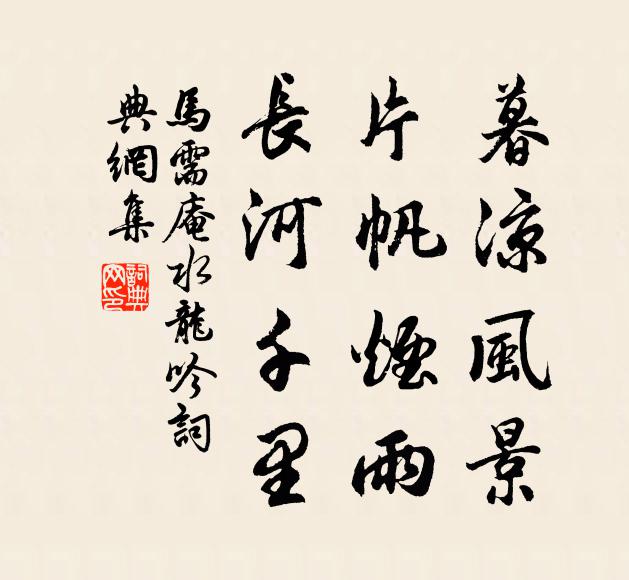 暮凉風景
片帆煙雨
長河千里
馬需庵水龍吟詞
典網集
詞典網印